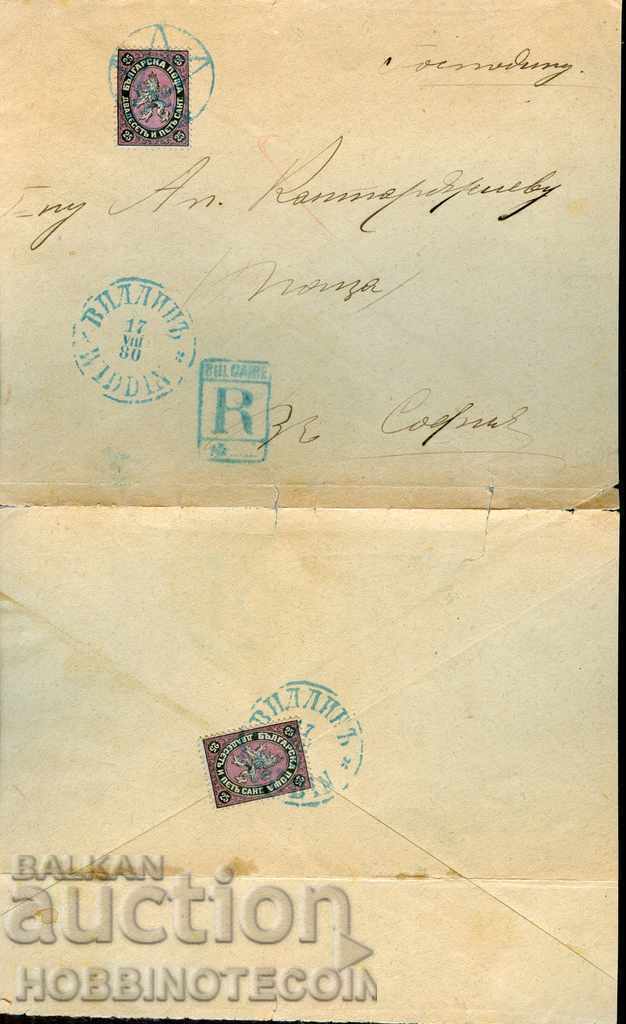 25 25
БЪЛГАРСКА ПОЩА
ДВАДЕСЕТЬ И ПЕТЬ САНТ.
25 25
Господину
Г-ну Ап. Кантарджиеву
Поща
ВИДДИНЪ
17
VIII
80
WIDDIN
BULGARIE
R
№
Въ София
ВИДДИНЪ
БЪЛГАРСКА ПОЩА
ДВАДЕСЕТЬ И ПЕТЬ САНТ.
25 25
25 25
BALKAN
auction
HOBBINOTECOIN